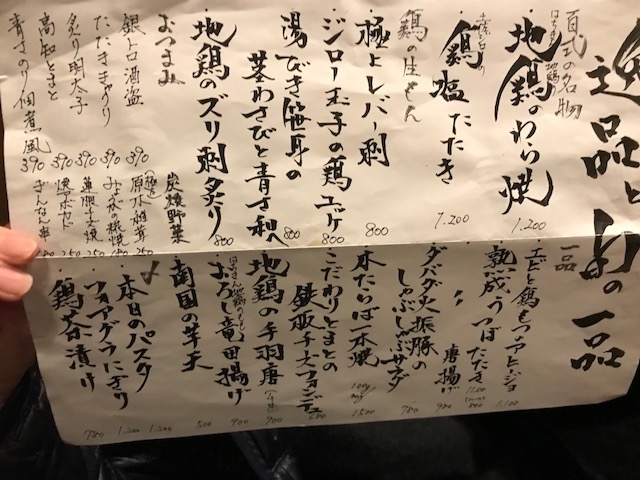 逸品と旬の一品
百式の名物
地鶏のわら焼
1.200
鶏塩たたき
1.200
鶏の生どん
極上レバー刺
800
ジロー玉子の鶏ユッケ
800
湯びき笹身の
茎わさびと青さ和へ
800
地鶏のズリ刺炙り
800
おつまみ
銀トロ酒盗
390
たたききゅうり
390
炙り明太子
390
高知とまと
390
青さのり佃煮風
390
炭焼野菜
原木椎茸
250
ぎんなん串
一品
エビと鶏もつのアヒージョ
1.100
熟成うつぼ
たたき
唐揚げ
980
ダバダ火振豚の
しゃぶしゃぶサラダ
780
本たらば一本焼
100g
1.500
こだわりとまとの
鉄板チーズフォンデュ
680
地鶏の手羽唐
おろし竜田揚げ
900
南国の芋天
500
本日のパスタ
1.200
フォアグラにぎり
1.200
鶏茶漬け
780